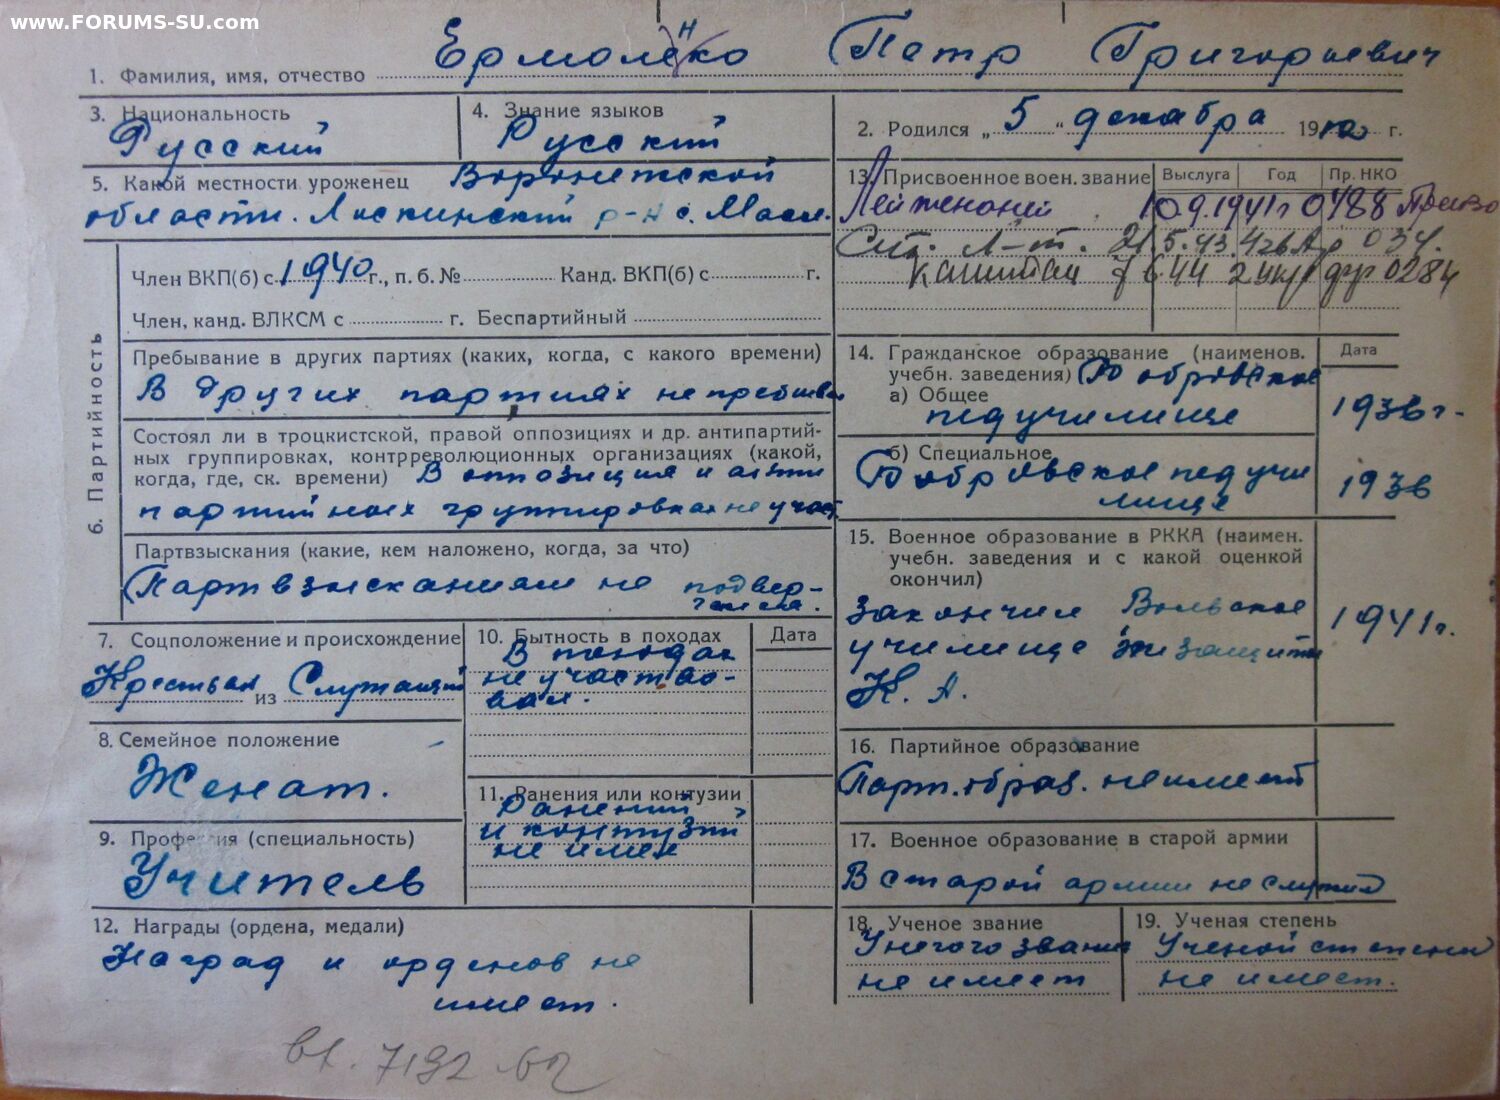 www.FORUMS-SU.com
1. Фамилия, имя, отчество Ермоленко Петр Григорьевич
3. Национальность
Русский
4. Знание языков
Русский
2. Родился „ 5 “ декабра 19 г.
5. Какой местности уроженец Воронежской
области. Лискинский р-н с. Масл.
13. Присвоенное воен. звание Выслуга Год Пр. НКО
Лейтенант 10.9.1941г 0488
Ст. л-т. 21.5.43.
Капитан 7 6 44 2 укр фр 0284
6. Партийность
Член ВКП(б) с 1940 г., п. б. № Канд. ВКП(б) с г.
Член, канд. ВЛКСМ с г. Беспартийный
Пребывание в других партиях (каких, когда, с какого времени)
В других партиях не пребывал
Состоял ли в троцкистской, правой оппозициях и др. антипартий-
ных группировках, контрреволюционных организациях (какой,
когда, где, ск. времени) В оппозиция и анти
партийных группировках не участ.
Партвзыскания (какие, кем наложено, когда, за что)
Партвзысканиям не подвер-
14. Гражданское образование (наименов.
учебн. заведения) Бобровское
а) Общее
педучилище
Дата
1936г.
б) Специальное
Бобровское педучи
лище
1936
15. Военное образование в РККА (наимен.
учебн. заведения и с какой оценкой
окончил)
закончил Вольское
училище хим защиты
К. А.
1941г.
7. Соцположение и происхождение
Крестьян из Служащий
8. Семейное положение
Женат.
9. Профессия (специальность)
Учитель
10. Бытность в походах Дата
В походах
не участво-
вал.
11. Ранения или контузии
Ранений
и контузий
не имел
12. Награды (ордена, медали)
Наград и орденов не
имеет.
16. Партийное образование
Парт. образ. не имеет
17. Военное образование в старой армии
В старой армии не служил
18. Ученое звание
Ученого звания
не имеет
19. Ученая степень
Ученой степени
не имеет.
вх. 7192